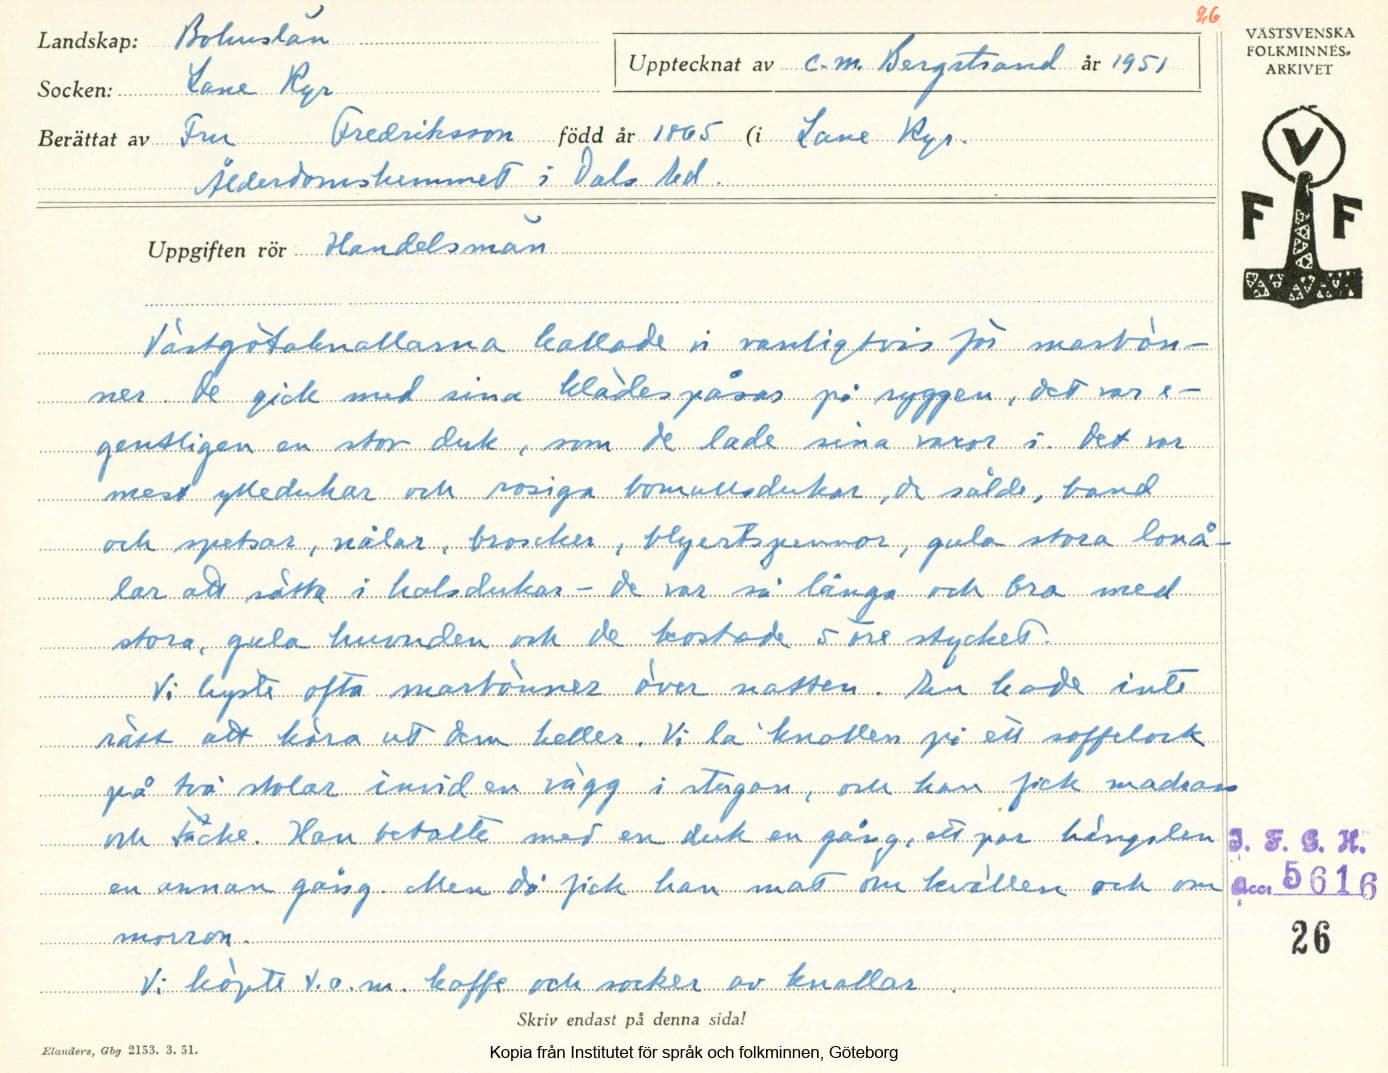 26
Landskap: Bohuslän
Socken: Lane Ryr
Upptecknat av C. M. Bergstrand år 1951
VÄSTSVENSKA
FOLKMINNES-
ARKIVET
Berättat av Fru Fredriksson född år 1865 (i Lane Ryr.
Ålderdomshemmet i Dals Ed.
V
F F
Uppgiften rör Handelsmän
Västgötaknallarna kallade vi vanligtvis för marbön-
ner. De gick med sina klädespåsar på ryggen, det var e-
gentligen en stor duk, som de lade sina varor i. Det var
mest ylledukar och rosiga bomullsdukar, de sålde, band
och spetsar, nålar, broscher, blyertspennor, gula stora lonå-
lar att sätta i halsdukar – de var så långa och bra med
stora, gula huvuden och de kostade 5 öre stycket.
Vi hyste ofta marbönner över natten. En hade inte
rätt att köra ut dem heller. Vi la' knallen på ett soffelock
på två stolar invid en vägg i stugan, och han fick madrass
och täcke. Han betalte med en duk en gång, ett par hängslen
en annan gång. Men då fick han mat om kvällen och om
morron.
Vi köpte t.o.m. kaffe och socker av knallar.
I. F. G. H.
Acc. 5616
26
Skriv endast på denna sida!
Elanders, Gbg 2153. 3. 51.
Kopia från Institutet för språk och folkminnen, Göteborg